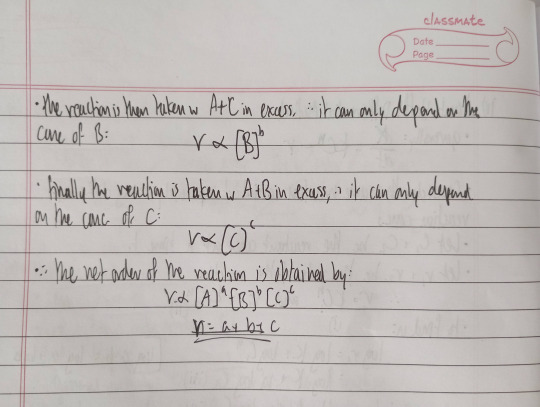 classmate
Date
Page
• The reaction is then taken w A+C in excess, ∴ it can only depend on the
conc of B:
V ∝ [B]ᵇ
• Finally the reaction is taken w A+B in excess, ∴ it can only depend
on the conc of C:
V ∝ [C]ᶜ
∴ The net order of the reaction is obtained by:
V ∝ [A]ᵃ [B]ᵇ [C]ᶜ
n = a + b + c